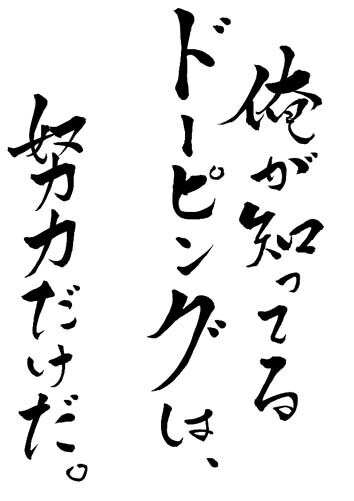 俺が知ってる
ドーピングは、
努力だけだ。